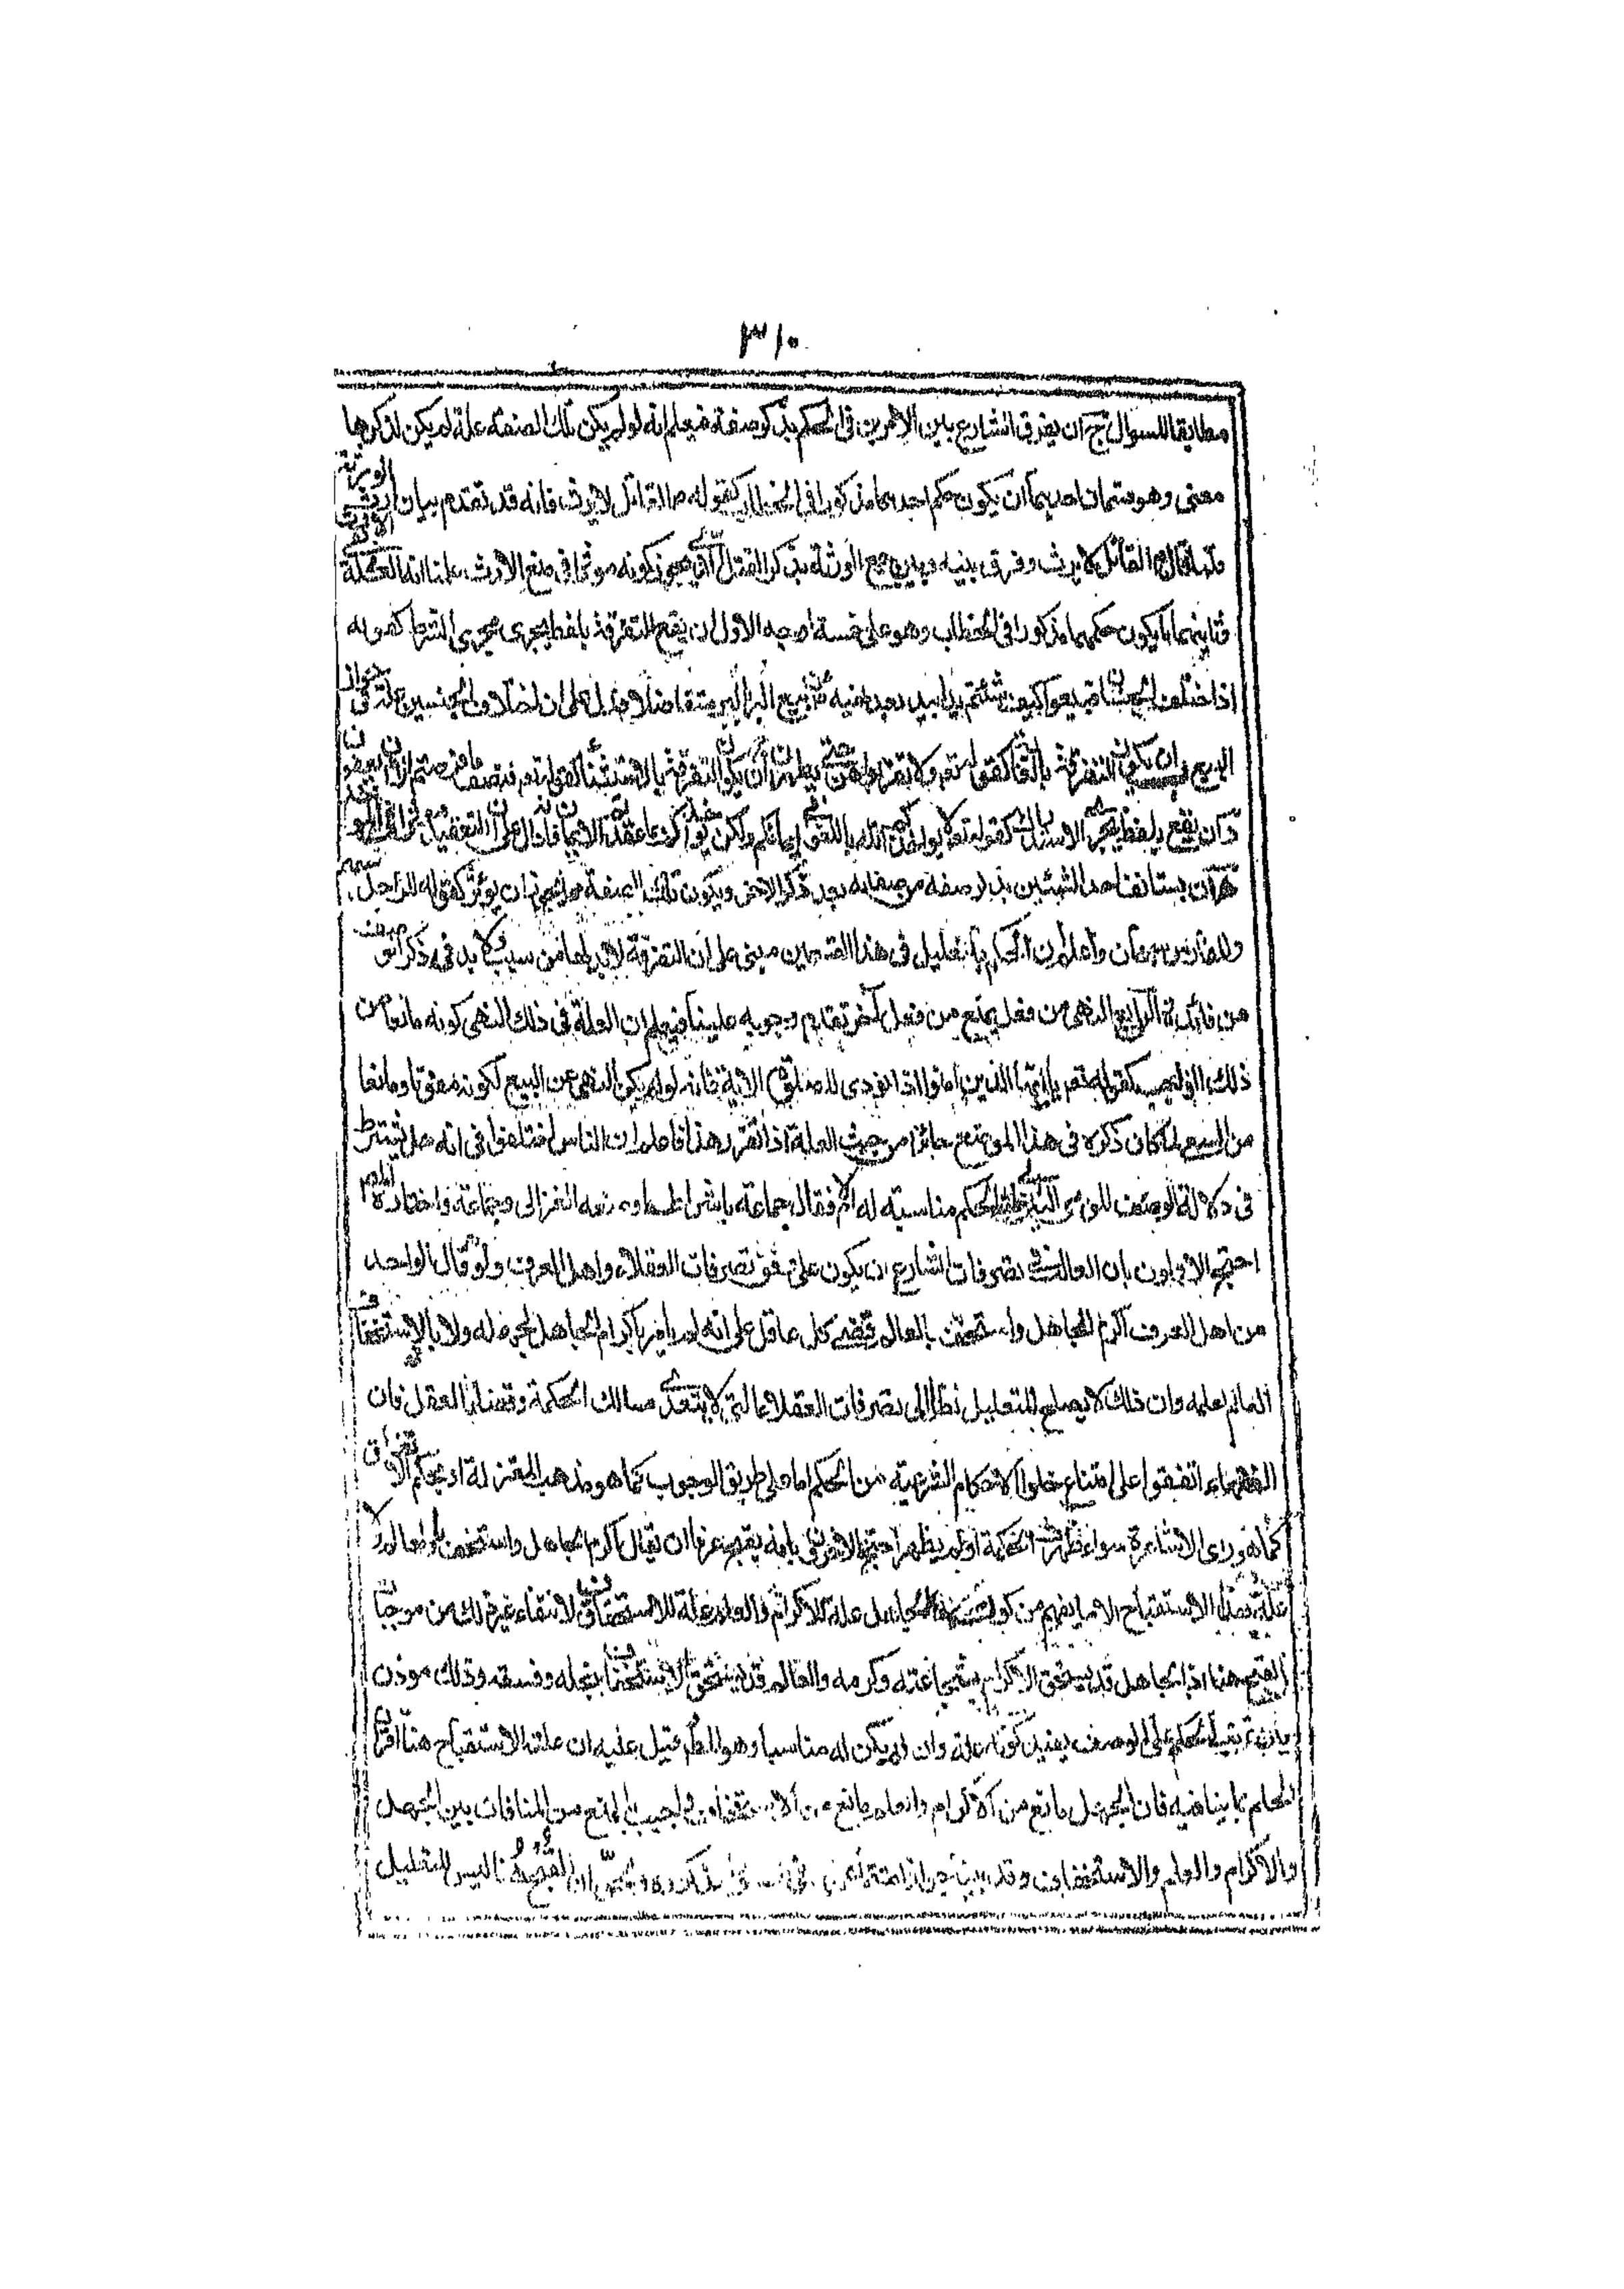 ٣١٠
مطابقا للسوال ج ان يفرق الشارع بين الامرين في الحكم بذكر صفة فيعلم انه لو لم يكن تلك الصفة علة لم يكن لذكرها
معنى وهو قسمان احديهما ان يكون حكم احديهما مذكورا في الخطاب كقوله القاتل لا يرث فانه قد تقدم بيان ارث الورثة
فلما قال القاتل لا يرث وفرق بينه وبين جميع الورثة بذكر القتل الذي يجوز كونه موثرا في منع الارث علمنا انه العلة
وثانيهما ما يكون حكمهما مذكورا في الخطاب وهو على خمسة اوجه الاول ان يقع التفرقة بلفظ يجرى مجرى الشرط كقوله
اذا اختلف الجنسان فبيعوا كيف شئتم يدا بيد بعد نهيه عن بيع البر بالبر متفاضلا فدل على ان اختلاف الجنسين علة في جواز
البيع ب ان يكون التفرقة بالغاية كقوله تعم ولا تقربوهن حتى يطهرن ج ان يكون التفرقة بالاستثناء كقوله تعم فنصف ما فرضتم الا ان يعفون
د ان يقع بلفظ يجرى الاستدراك كقوله تعم لا يواخذكم الله باللغو في ايمانكم ولكن يواخذكم بما عقدتم الايمان فدل على ان التعقيد
ه ان يستانف احد الشيئين بذكر صفة من صفاته بعد ذكر الاخر ويكون تلك الصفة مما يجوز ان يوثر كقوله للراجل سهم
وللفارس سهمان واعلم ان الحكم بالتعليل في هذا القسمين مبنى على ان التفرقة لابد لها من سبب ولا بد في ذكر الوصف
من فائدة الرابع النهى من فعل يمنع من فعل آخر تقدم وجوبه علينا فيعلم ان العلة في ذلك النهى كونه مانعا من
ذلك الواجب كقوله تعم يا ايها الذين امنوا اذا نودى للصلوة الاية فانه لو لم يكن النهى عن البيع لكونه مفوتا ومانعا
من السعى لما كان ذكره في هذا الموضع جائزا من حيث العلة اذا تقرر هذا فاعلم ان الناس اختلفوا في انه هل يشترط
في دلالة الوصف المومى اليه للحكم مناسبته له ام لا فقال جماعة باشتراطها ومنعه الغزالى وجماعة واختاره المص
احتج الاولون بان الغالب في تصرفات الشارع ان يكون على وفق تصرفات العقلاء واهل العرف ولو قال الواحد
من اهل العرف اكرم الجاهل واستخف بالعالم قضى كل عاقل على انه لم يامر باكرام الجاهل لجهله ولا بالاستخفاف
العالم لعلمه وان ذلك لا يصلح للتعليل نظرا الى تصرفات العقلاء التي لا يتعدى مسالك الحكمة وقضايا العقل فان
الفقهاء اتفقوا على امتناع خلوا الاحكام الشرعية من الحكم اما على طريق الوجوب كما هو مذهب المعتزلة او بحكم الاتفاق
كما هو راى الاشاعرة سواء ظهرت الحكمة او لم يظهر احتج الاخرون بانه يقبح عرفا ان يقال اكرم الجاهل واستخف بالعالم
علة الاستقباح الا ما يفهم من كون الجاهل علة للاكرام والعلم علة للاستخفاف لانتفاء غير ذلك من موجبات
القبح هنا اذ الجاهل قد يستحق الاكرام بشجاعته وكرمه والعالم قد يستحق الاستخفاف ببخله وفسقه وذلك موذن
بان ترتيب الحكم على الوصف يفيد كونه علة وان لم يكن له مناسبا وهو المط قيل عليه ان علة الاستقباح هنا اقتران
الحكم بما ينافيه فان الجهل مانع من الاكرام والعلم مانع من الاستخفاف اجيب بالمنع من المنافات بين الجهل
والاكرام والعلم والاستخفاف وقد بينا ليس للتعليل